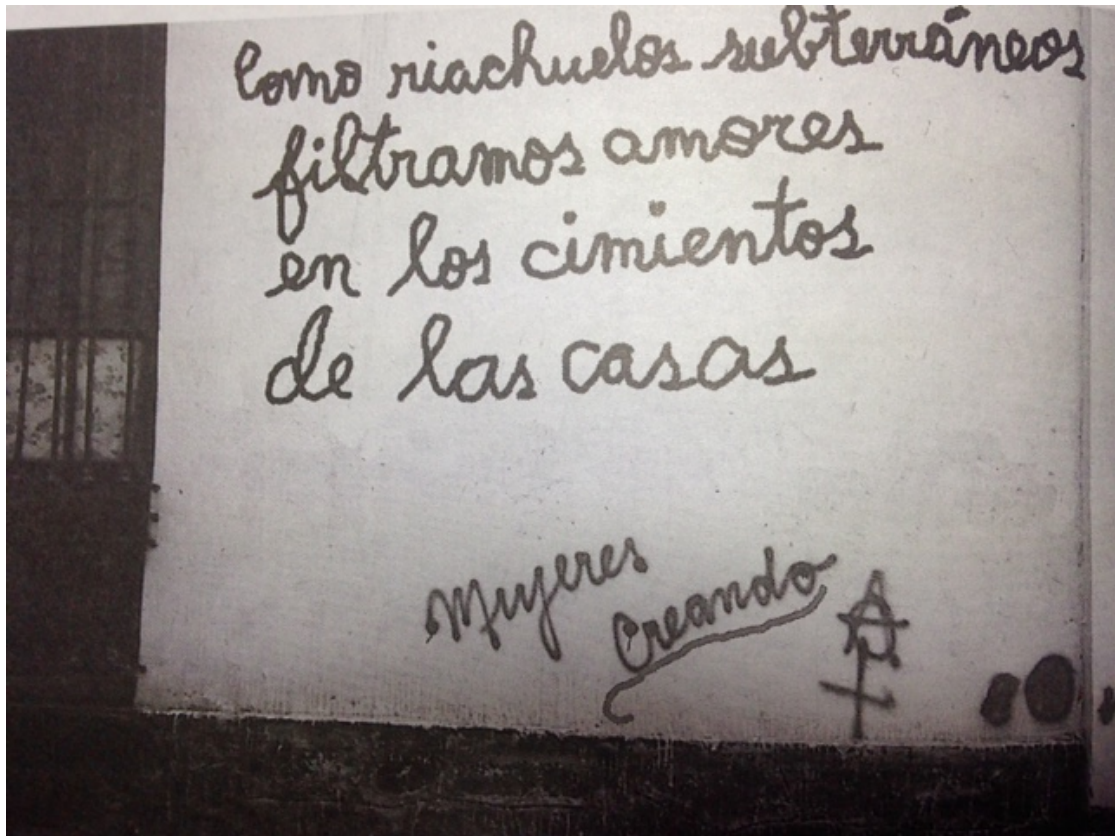 Como riachuelos subterráneos
filtramos amores
en los cimientos
de las casas
Mujeres
Creando